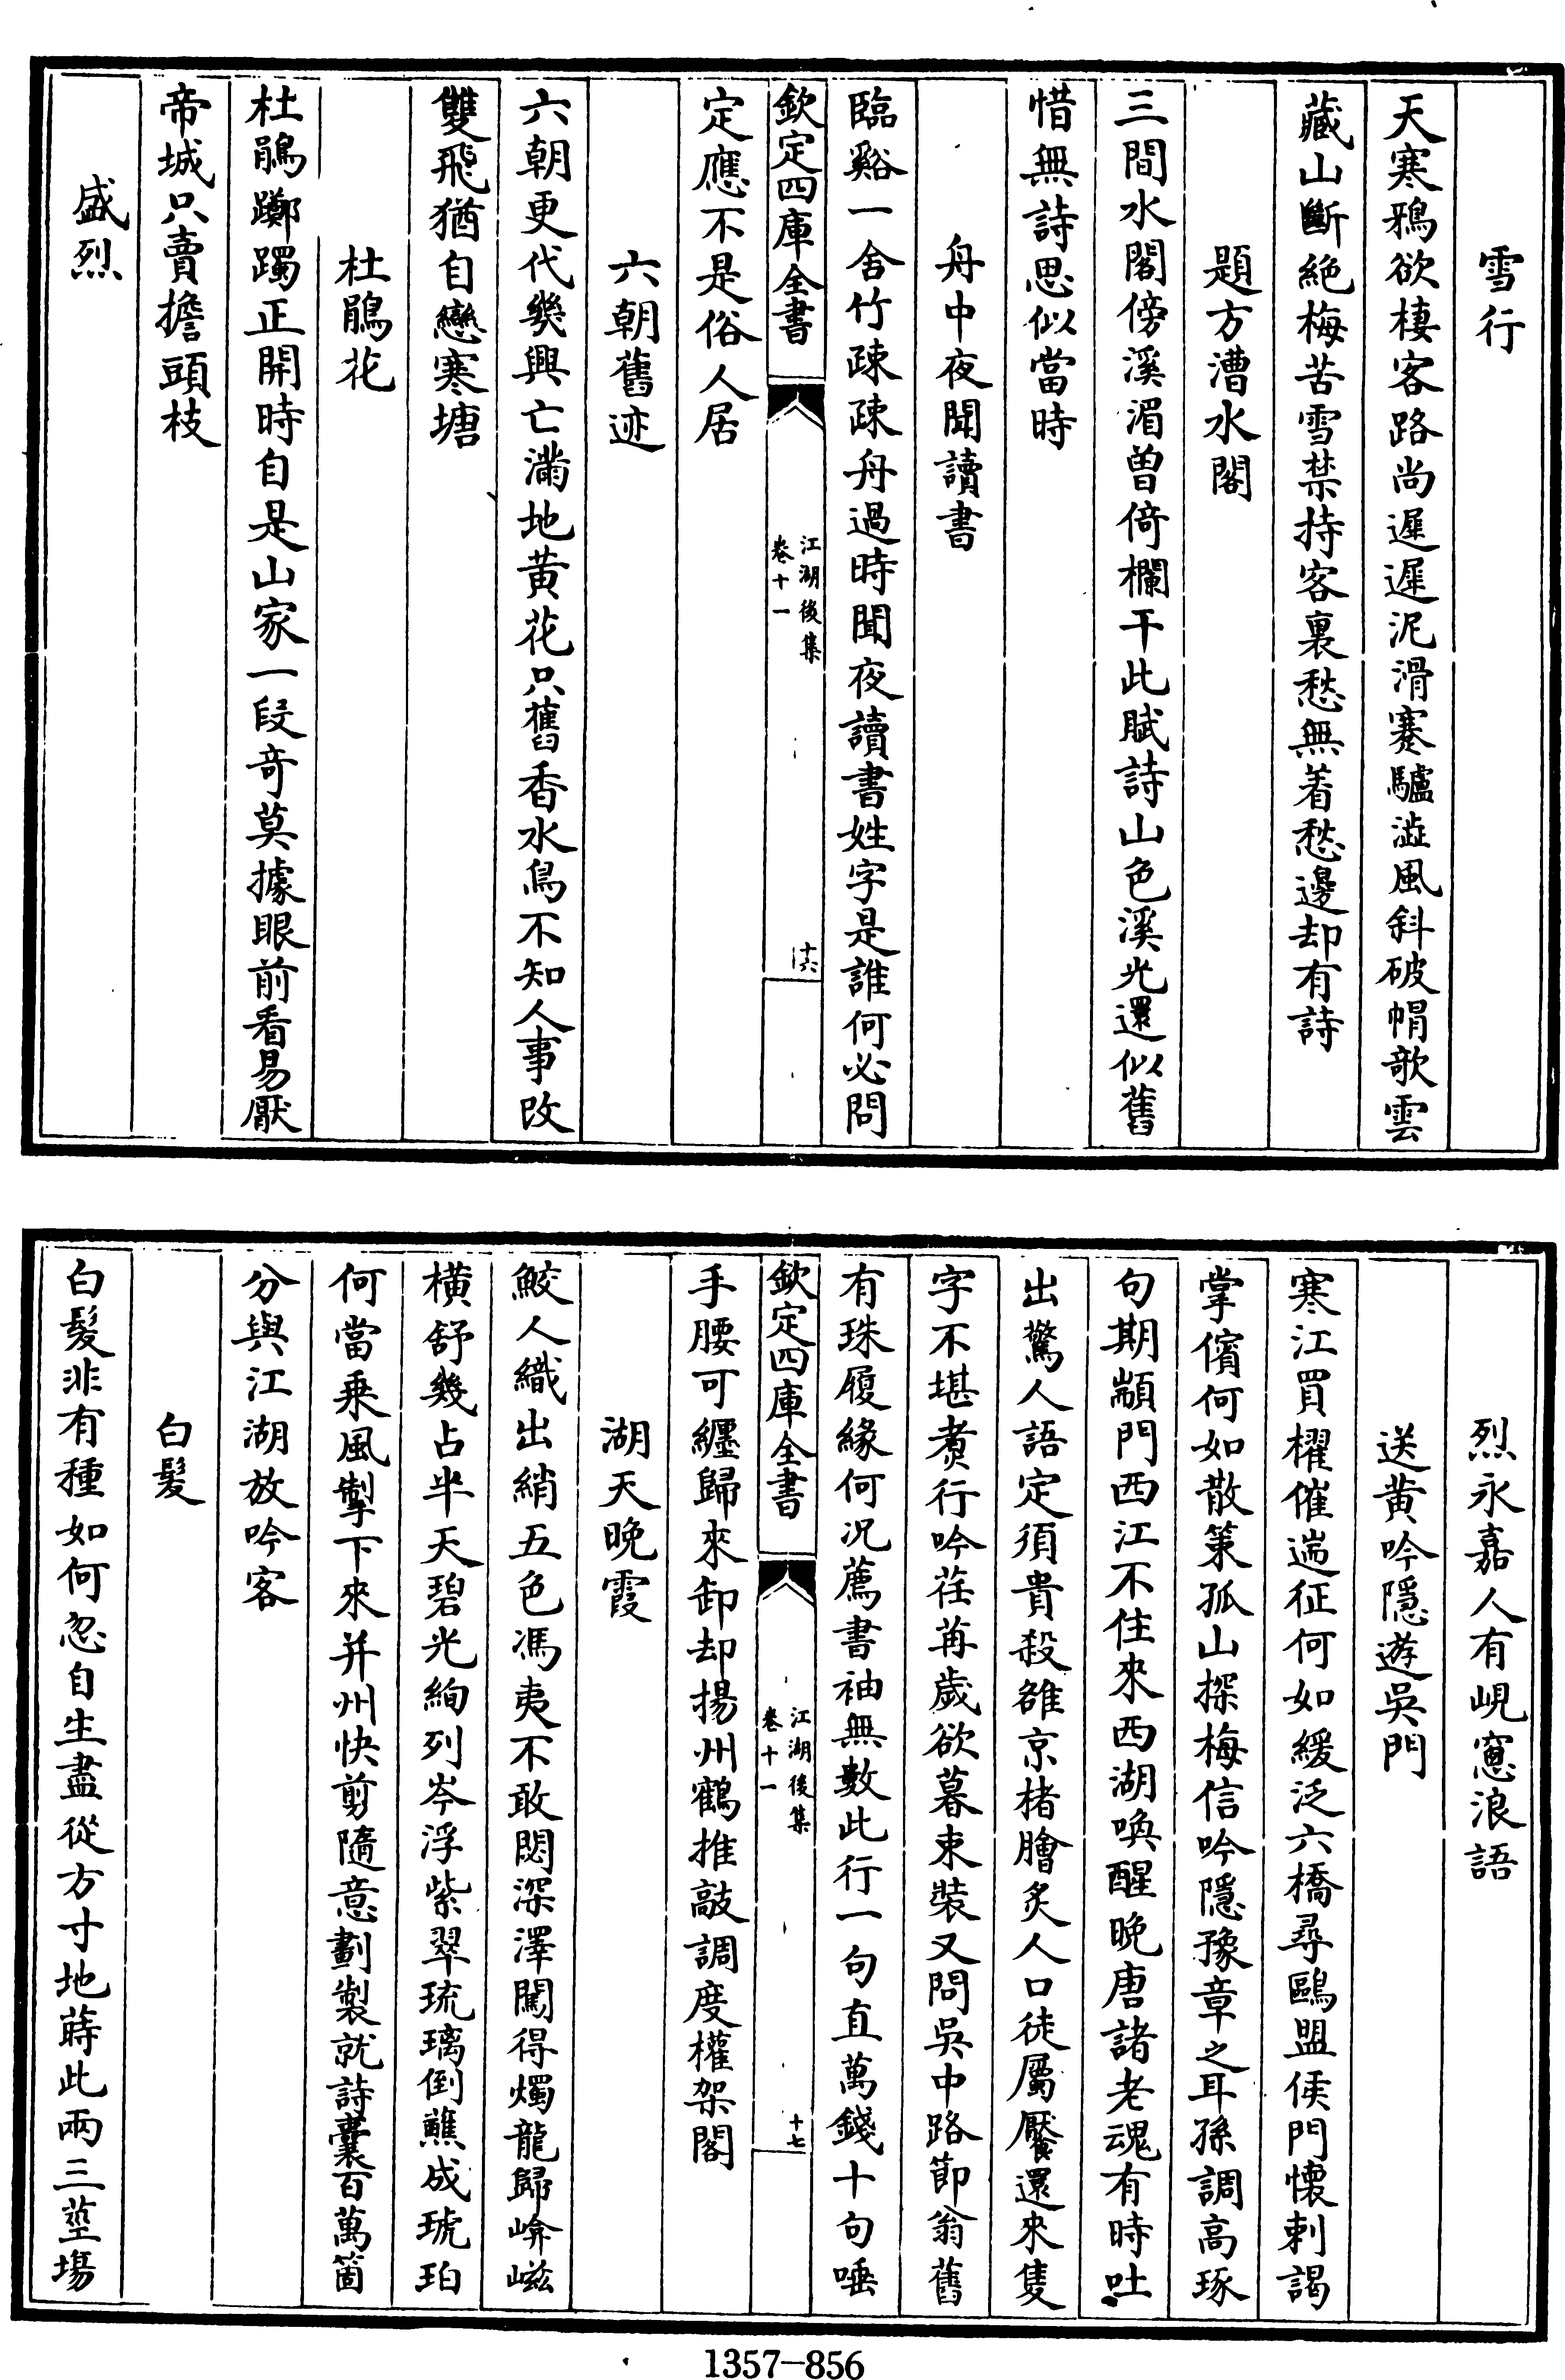 雪行
天寒鴉欲棲客路尚遲遲泥滑蹇驢澁風斜破帽欹雲
藏山斷絶梅苦雪禁持客裏愁無着愁邊却有詩
題方漕水閣
三間水閣傍溪湄曽倚欄干此賦詩山色溪光還似舊
惜無詩思似當時
舟中夜聞讀書
臨谿一舍竹疎疎舟過時聞夜讀書姓字是誰何必問
欽定四庫全書
江湖後集
卷十一
十六
定應不是俗人居
六朝舊迹
六朝更代幾興亡滿地黄花只舊香水鳥不知人事改
雙飛猶自戀寒塘
杜鵑花
杜鵑躑躅正開時自是山家一段奇莫據眼前看易厭
帝城只賣擔頭枝
盛烈
烈永嘉人有峴窻浪語
送黄吟隱遊吳門
寒江買櫂催遄征何如緩泛六橋尋鷗盟侯門懐刺謁
掌儐何如散策孤山探梅信吟隱豫章之耳孫調高琢
句期顓門西江不住來西湖喚醒晚唐諸老魂有時吐
出驚人語定須貴殺雒京楮膾炙人口徒屬饜還來隻
字不堪煑行吟荏苒歲欲暮束裝又問吳中路節翁舊
有珠履緣何况薦書袖無數此行一句直萬錢十句唾
欽定四庫全書
江湖後集
卷十一
十七
手腰可纒歸來卸却揚州鶴推敲調度權架閣
湖天晚霞
鮫人織出綃五色馮夷不敢閟深澤闖得燭龍歸崦嵫
横舒幾占半天碧光絢列岑浮紫翠琉璃倒蘸成琥珀
何當乘風掣下來并州快剪隨意劃製就詩囊百萬箇
分與江湖放吟客
白髪
白髪非有種如何忽自生盡從方寸地蒔此兩三莖塲
1357-856